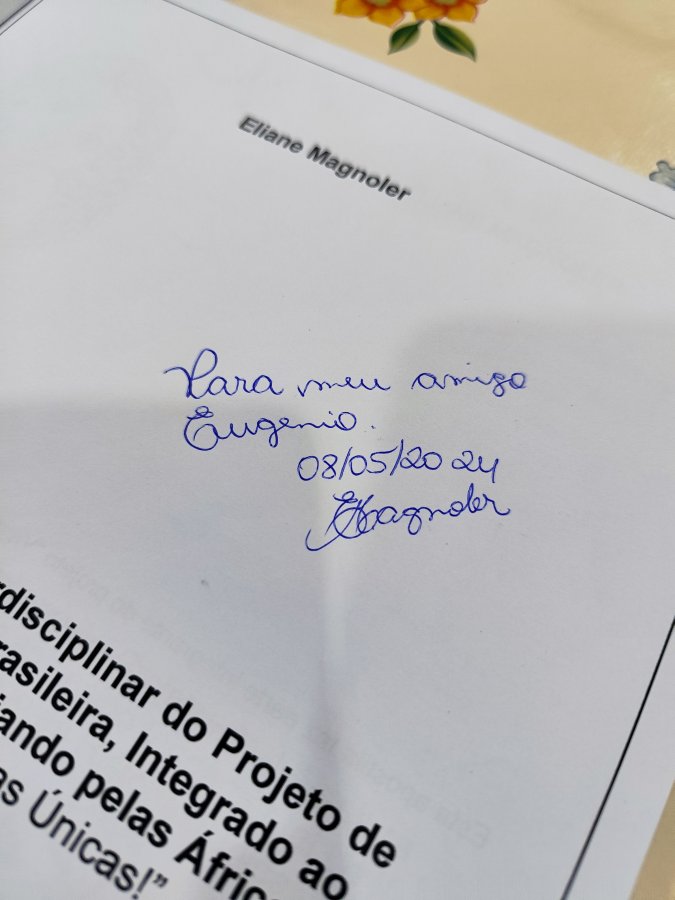 Eliane Magnoler
Para meu amigo
Eugenio.
08/05/2024
EMagnoler
rdisciplinar do Projeto de
rasileira, Integrado ao
ando pelas Áfric
as Únicas!”